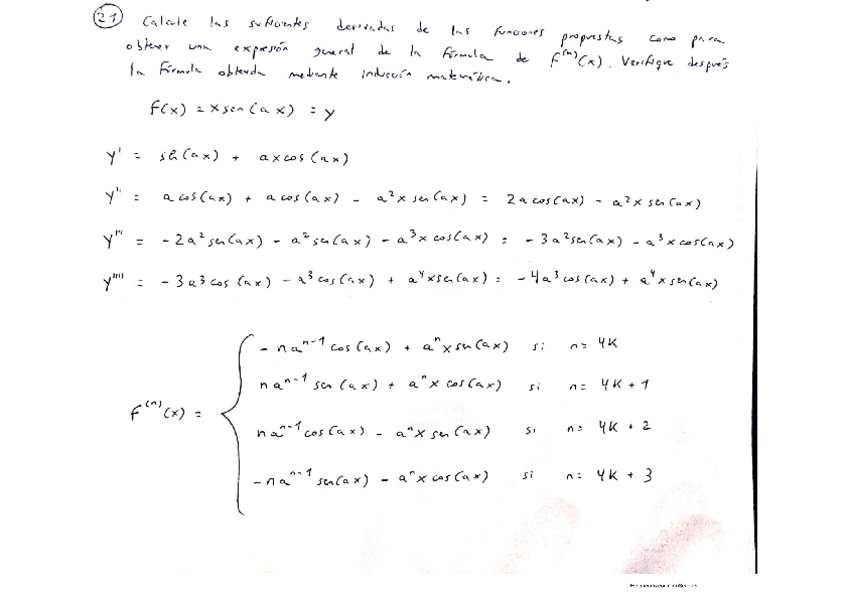 21 Calcule las suficientes derivadas de las funciones propuestas como para
obtener una expresión general de la fórmula de f^(n)(x). Verifique después
la fórmula obtenida mediante inducción matemática.
f(x) = x sen(ax) = y
y' = sen(ax) + ax cos(ax)
y'' = a cos(ax) + a cos(ax) - a²x sen(ax) = 2a cos(ax) - a²x sen(ax)
y''' = -2a² sen(ax) - a² sen(ax) - a³x cos(ax) = -3a² sen(ax) - a³x cos(ax)
y'''' = -3a³ cos(ax) - a³ cos(ax) + a⁴x sen(ax) = -4a³ cos(ax) + a⁴x sen(ax)
f^(n)(x) =
-na^(n-1) cos(ax) + a^n x sen(ax) si n = 4K
na^(n-1) sen(ax) + a^n x cos(ax) si n = 4K + 1
na^(n-1) cos(ax) - a^n x sen(ax) si n = 4K + 2
-na^(n-1) sen(ax) - a^n x cos(ax) si n = 4K + 3